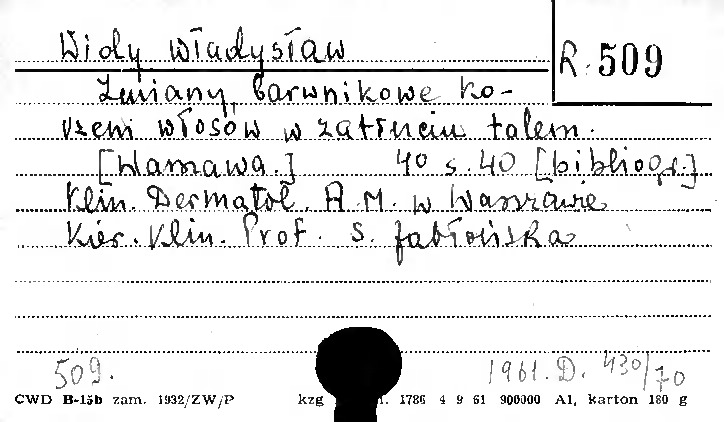 Widy Władysław
R. 509
Zmiany barwnikowe ko-
rzeni włosów w zatruciu talem.
[Warszawa.] 4o s. 40 [bibliogr.]
Klin. Dermatol. A.M. w Warszawie
Kier. Klin. Prof. S. Jabłońska
509. 1961. D. 430/70
CWD B-15b zam. 1932/ZW/P kzg 1786 4 9 61 900000 A1, karton 180 g